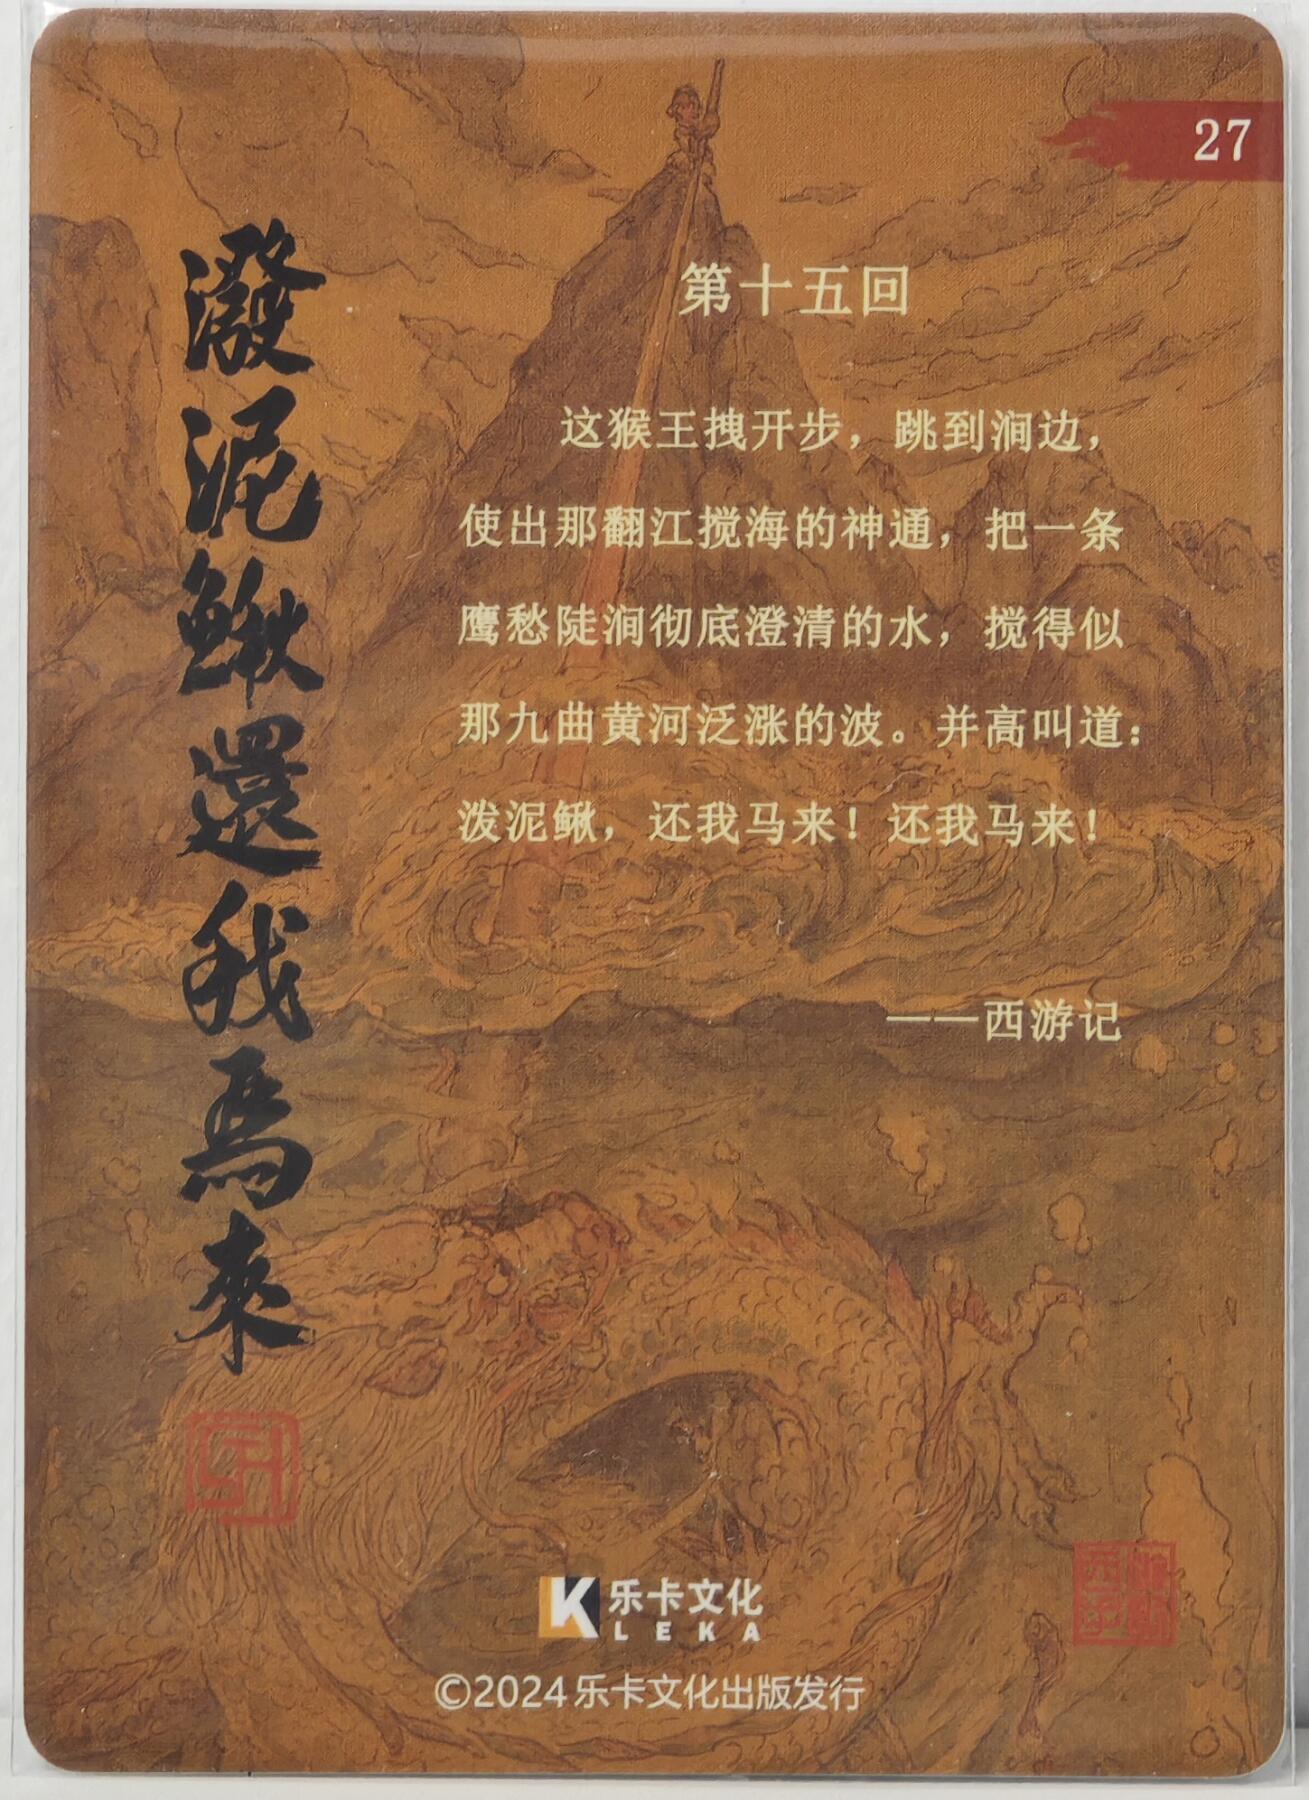 27
潑泥鰍還我馬來
第十五回
这猴王拽开步，跳到涧边，
使出那翻江搅海的神通，把一条
鹰愁陡涧彻底澄清的水，搅得似
那九曲黄河泛涨的波。并高叫道：
泼泥鳅，还我马来！还我马来！
——西游记
K 乐卡文化
LEKA
©2024乐卡文化出版发行